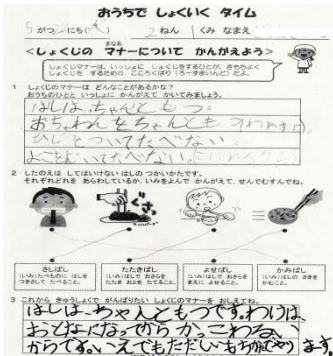 おうちで しょくいく タイム
5がつ にち( )
2ねん くみ なまえ
<しょくじの マナーについて かんがえよう>
まなあ
しょくじマナーは、いっしょに しょくじをするひとが、きもちよく
しょくじを するための こころくばり(るーるまいんど)だよ。
1 しょくじのマナーは どんなことがあるかな?
おうちのひとと いっしょに かんがえて かいてみましょう。
はしは、ちゃんともつ。
おちゃわんをちゃんともつ
ひじをついてたべない
よこをむいてたべない
2 したのえは してはいけない はしの つかいかたです。
それぞれどれを あらわしているか、いみをよんで かんがえて、せんでむすんでね。
ぐさっ
さしばし
(いみ)たべものに はしを
つきさして たべること。
たたきばし
(いみ)はしで おさらを
たたき おとを たてること。
よせばし
(いみ)はしで おさらを
まえに よせること。
かみばし
(いみ)はしの さきを
かむこと。
3 これから きゅうしょくで がんばりたい しょくじのマナーを おしえてね。
はしは、ちゃんともつです。わけは、
おとなになってから かっこわるい
からです。いえでもただしいもちかたでやります。